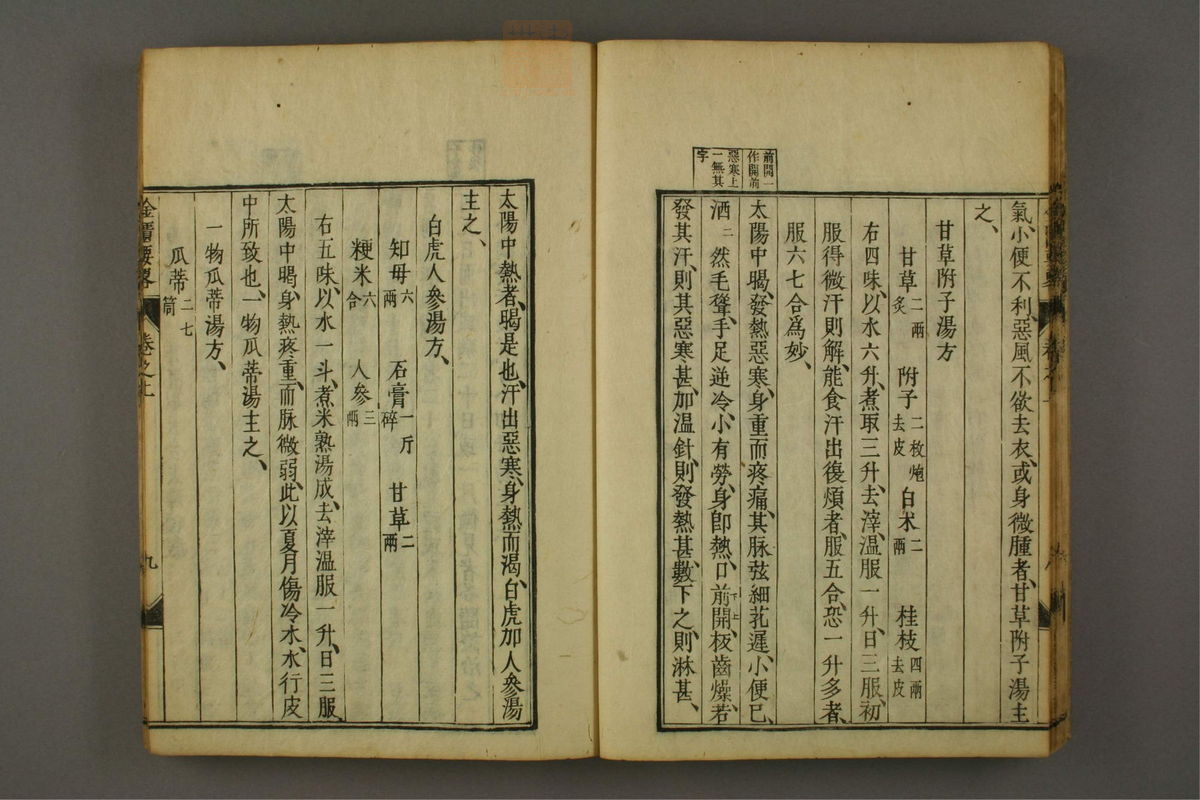 前開一
作開前
惡寒上
一無其
字
氣小便不利、惡風不欲去衣、或身微腫者、甘草附子湯主
之、
甘草附子湯方
甘草二兩炙　附子二枚炮去皮　白朮二兩　桂枝四兩去皮
右四味、以水六升、煮取三升、去滓、溫服一升、日三服、初
服得微汗則解、能食汗出後煩者、服五合、恐一升多者、
服六七合爲妙、
太陽中暍、發熱惡寒、身重而疼痛、其脉弦細芤遲、小便已、
洒二然毛聳、手足逆冷、小有勞、身即熱、口前下開上、板齒燥、若
發其汗、則其惡寒甚、加溫針、則發熱甚、數下之、則淋甚、
太陽中熱者、暍是也、汗出惡寒、身熱而渴、白虎加人參湯
主之、
白虎人參湯方、
知母六兩　石膏一斤碎　甘草二兩
粳米六合　人參三兩
右五味、以水一斗、煮米熟湯成、去滓、溫服一升、日三服、
太陽中暍、身熱疼重、而脉微弱、此以夏月傷冷水、水行皮
中所致也、一物瓜蒂湯主之、
一物瓜蒂湯方、
瓜蒂二七箇
金匱要畧　卷之上　九